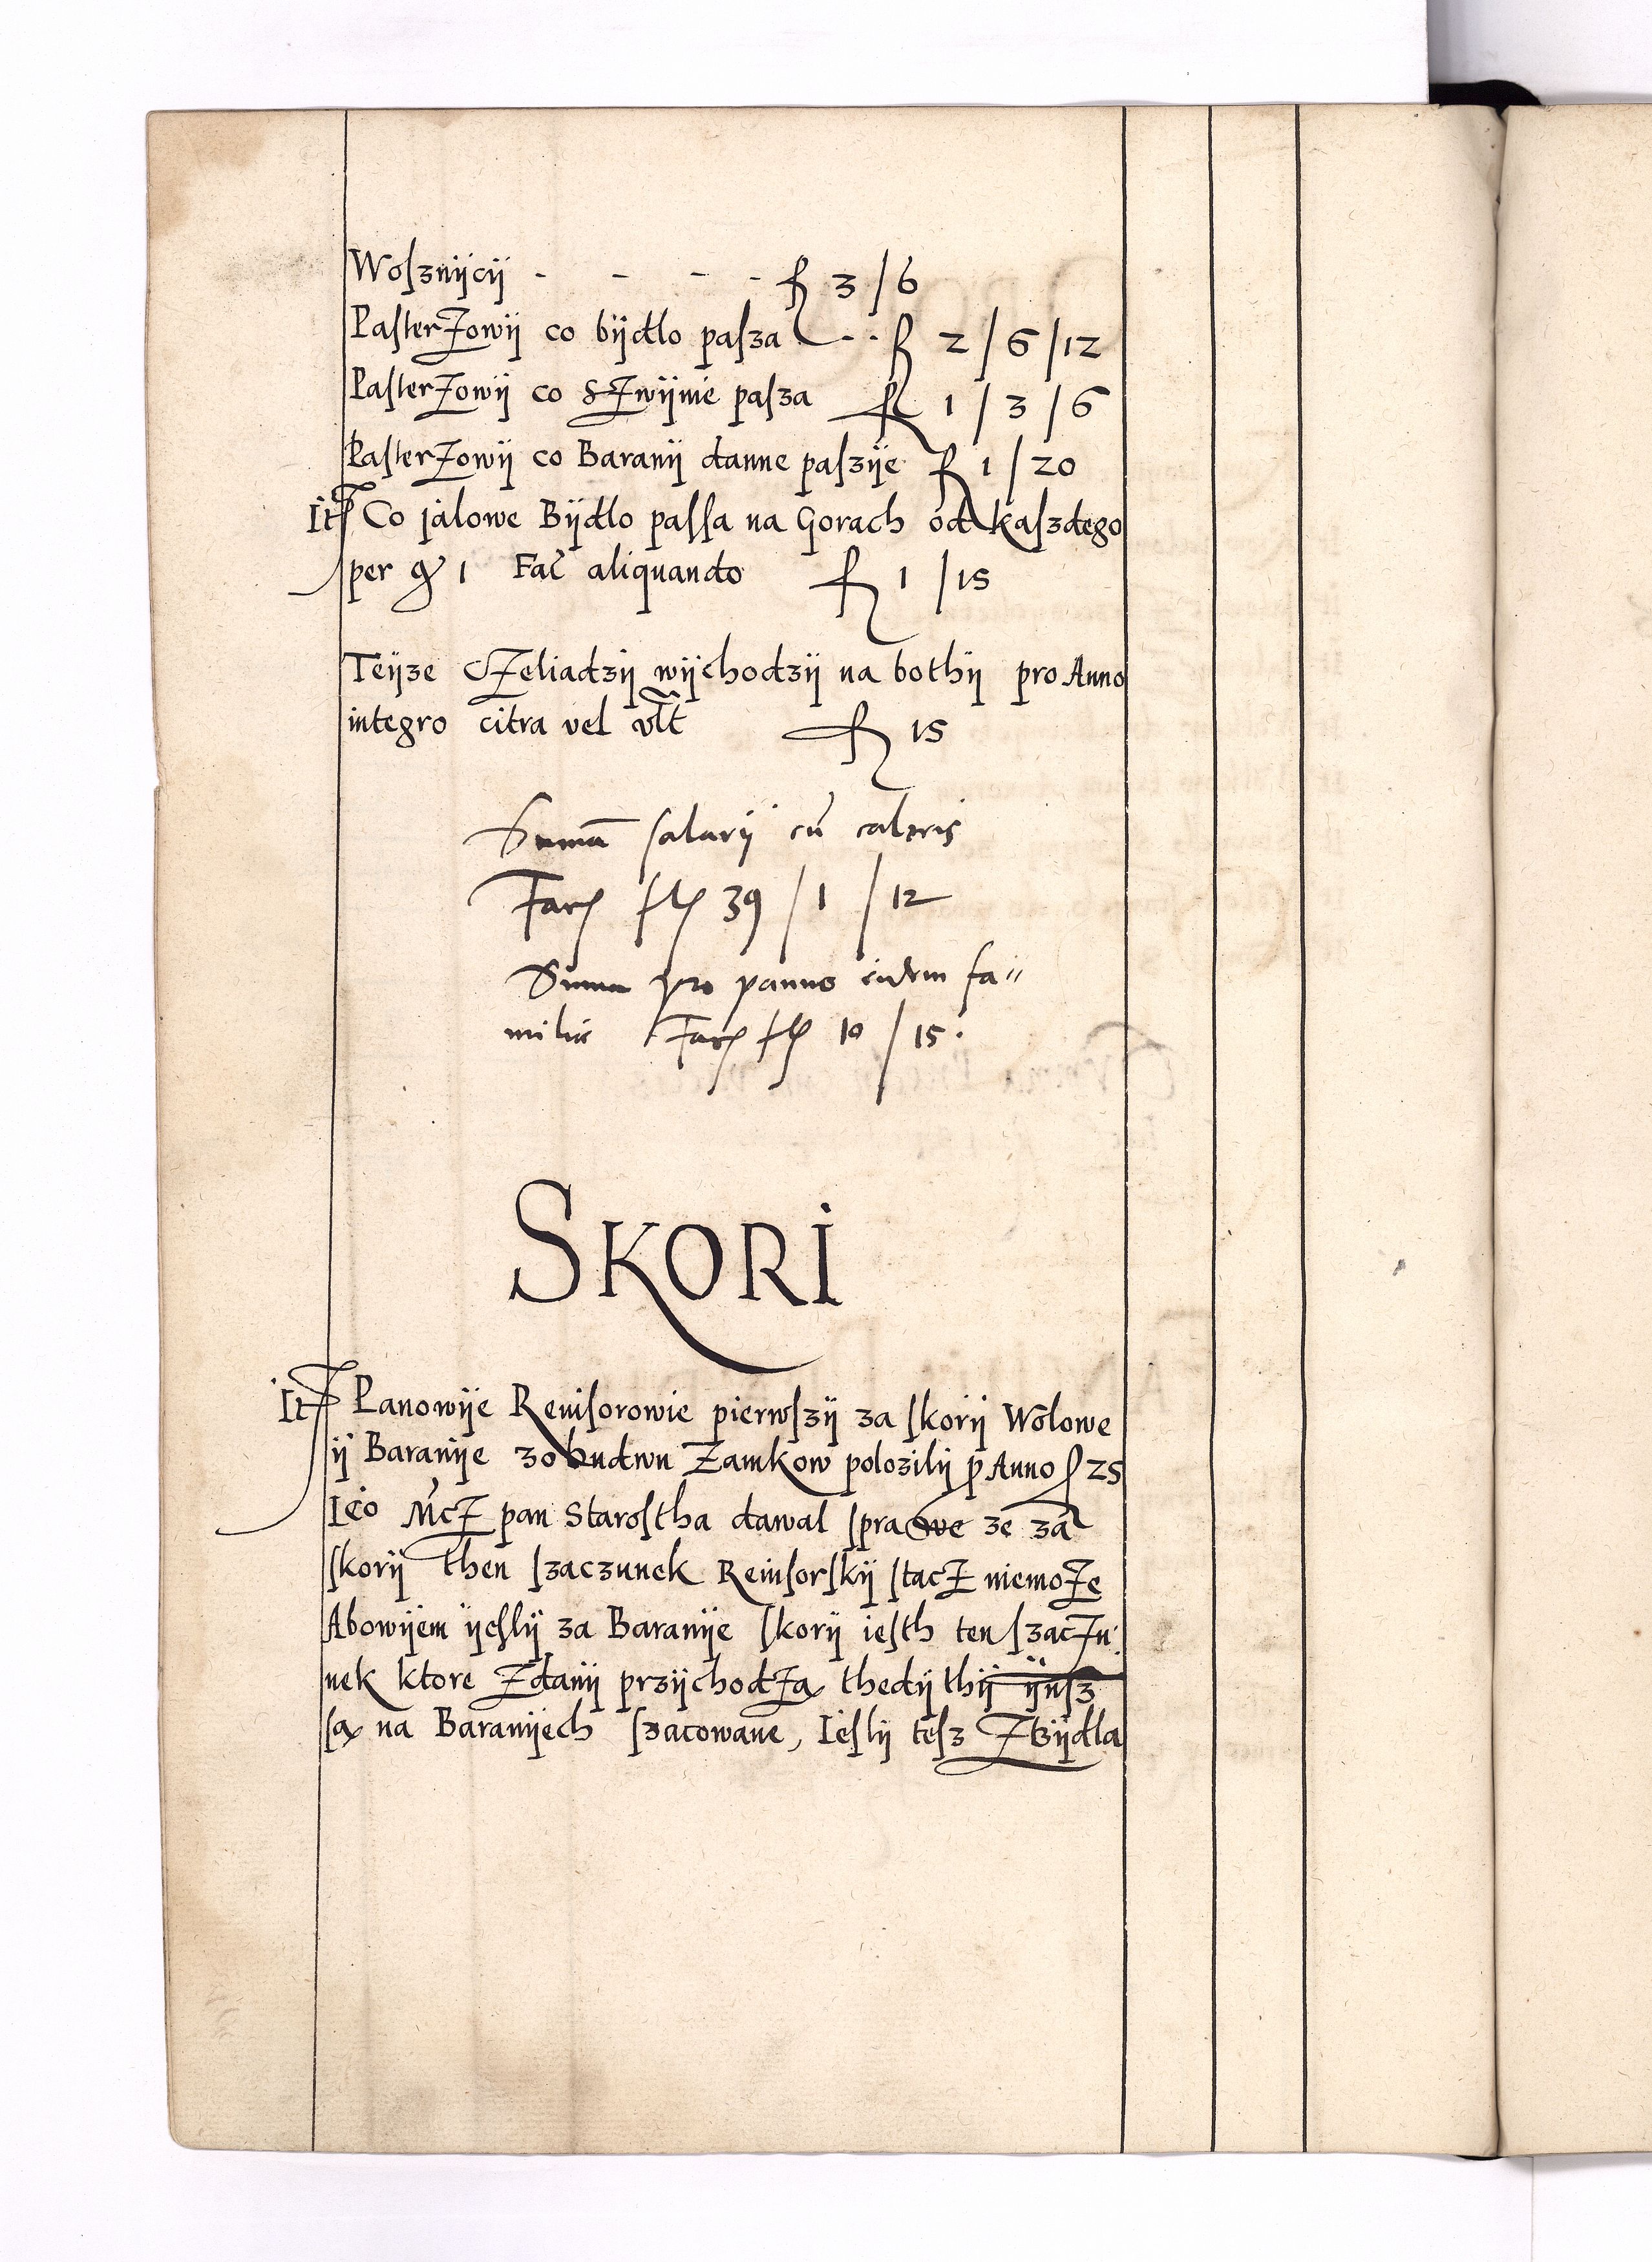 Woſznijcij - - - - fl 3 / 6
Paſterzowij co bijdlo paſza - - fl 2 / 6 / 12
Paſterzowij co Szwijnie paſza fl 1 / 3 / 6
Paſterzowij co Baranij danne paſzije fl 1 / 20
It Co jalowe Bijdlo paſſa na Gorach od kaſzdego
per gr 1 Fac̃ aliquando fl 1 / 15
Teijze Czeliadzij wijchodzij na bothij pro Anno
integro citra vel vlt̃ fl 15
Summa ſalarij cũ calceis
Fac fl 39 / 1 / 12
Summa pro panno eidem fa〃
miliae Fac fl 10 / 15.
SKORI
It Panowije Reuiſorowie pierwſzij za ſkorij Wolowe
ij Baranije zobudwu Zamkow polozilij p Anno fl 25
Ieo Mcz pan Staroſtha dawal ſprawe ze za
ſkorij then ſzaczunek Reuiſorſkij ſtacz niemoze
Abowijem ijeſlij za Baranije ſkorij ieſth ten ſzaczu
nek ktore Zdanij przijchodzą thedij thij ijuſz
ſą na Baranijech ſzacowane, Ieſlij teſz Zbijdla